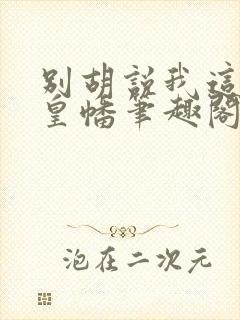 别胡说我这
皇幡笔趣阁
泡在二次元